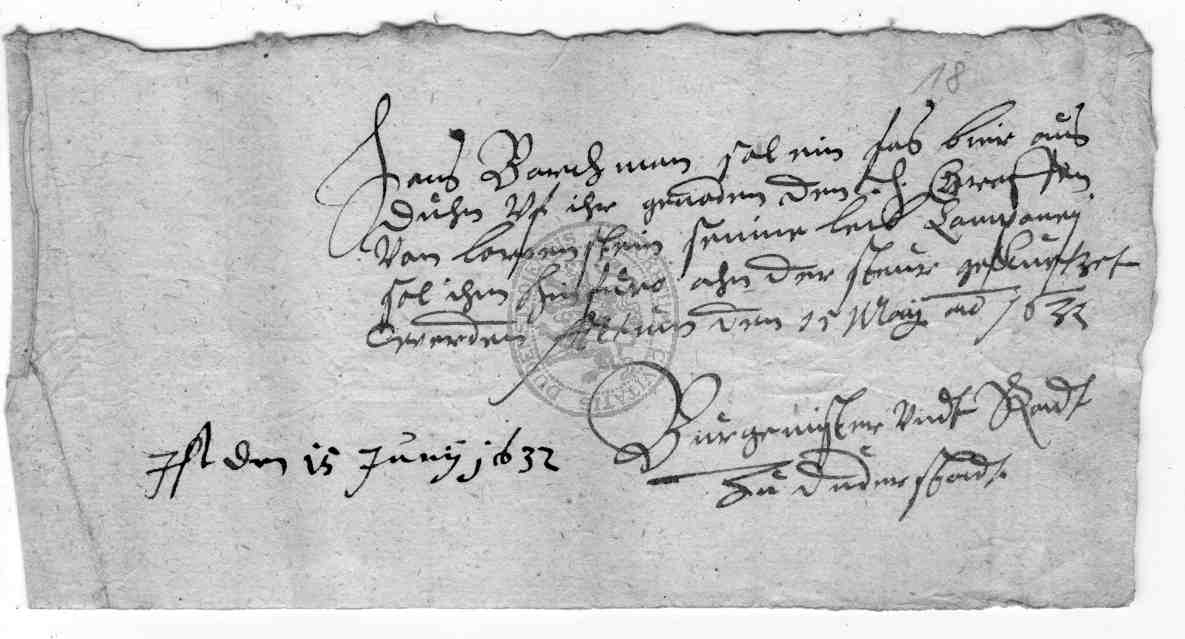 18
Hans Borchman sol ein fas bier aus
duhn Vf ihr genaden den h. Greffen
Von lowenstein seine leib Companey
sol ihm hinfuro ahn der steur gekurtzet
werden den 15 Maij ad 1632
Burgemeister Vndt Radt
zu duderstadt
Ist den 15 Junij 1632